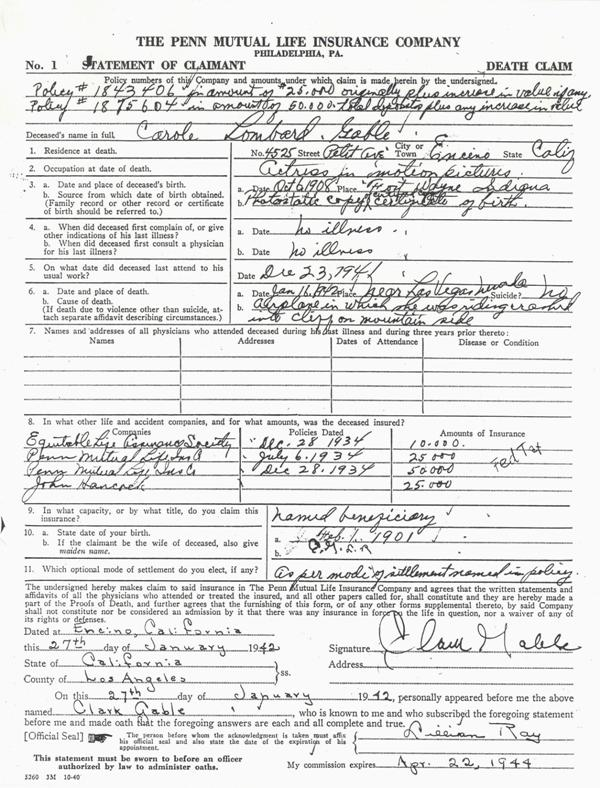 THE PENN MUTUAL LIFE INSURANCE COMPANY
PHILADELPHIA, PA.
No. 1 STATEMENT OF CLAIMANT DEATH CLAIM
Policy numbers of this Company and amounts under which claim is made herein by the undersigned.
Policy # 1843406 in amount of $25.000 originally plus increase in value if any
Policy # 1875604 in amount of 50.000 total deposits plus any increase in value
Deceased's name in full, Carole Lombard Gable
1. Residence at death. No. 4525 Street Petit Ave City or Town Encino State Calif
2. Occupation at date of death. Actress in motion pictures.
3. a. Date and place of deceased's birth. a. Date Oct 6 1908 Place Fort Wayne Indiana
b. Source from which date of birth obtained. b. Photostatic copy certificate of birth.
(Family record or other record or certificate
of birth should be referred to.)
4. a. When did deceased first complain of, or give
other indications of his last illness? a. Date no illness
b. When did deceased first consult a physician
for his last illness? b. Date no illness
5. On what date did deceased last attend to his
usual work? Date Dec 23, 1941
6. a. Date and place of death. a. Date Jan 16, 1942 Place near Las Vegas Nevada Suicide? no
b. Cause of death. b. Airplane in which she was riding crashed
(If death due to violence other than suicide, at- into cliff on mountain side
tach separate affidavit describing circumstances.)
7. Names and addresses of all physicians who attended deceased during his last illness and during three years prior thereto:
Names Addresses Dates of Attendance Disease or Condition
8. In what other life and accident companies, and for what amounts, was the deceased insured?
Companies Policies Dated Amounts of Insurance
Equitable Life Assurance Society Dec. 28 1934 10.000.
Penn Mutual Life Ins Co July 6. 1934 25000
Penn Mutual Life Ins Co Dec 28. 1934 50000
John Hancock 25.000
9. In what capacity, or by what title, do you claim this
insurance? named beneficiary
10. a. State date of your birth. a. Feb. 1. 1901
b. If the claimant be the wife of deceased, also give b.
maiden name.
11. Which optional mode of settlement do you elect, if any? As per mode of settlement named in policy.
The undersigned hereby makes claim to said insurance in The Penn Mutual Life Insurance Company and agrees that the written statements and
affidavits of all the physicians who attended or treated the insured, and all other papers called for, shall constitute and they are hereby made a
part of the Proofs of Death, and further agrees that the furnishing of this form, or of any other forms supplemental thereto, by said Company
shall not constitute nor be considered an admission by it that there was any insurance in force on the life in question, nor a waiver of any of
its rights or defenses.
Dated at Encino, California
this 27th day of January 1942 Signature Clark Gable
State of California Address
County of Los Angeles ss.
On this 27th day of January 1942, personally appeared before me the above
named Clark Gable, who is known to me and who subscribed the foregoing statement
before me and made oath that the foregoing answers are each and all complete and true.
[Official Seal] The person before whom the acknowledgment is taken must affix
his official seal and also state the date of the expiration of his
appointment. Lillian Ray
This statement must be sworn to before an officer
authorized by law to administer oaths. My commission expires Apr. 22, 1944
3260 3M 10-40